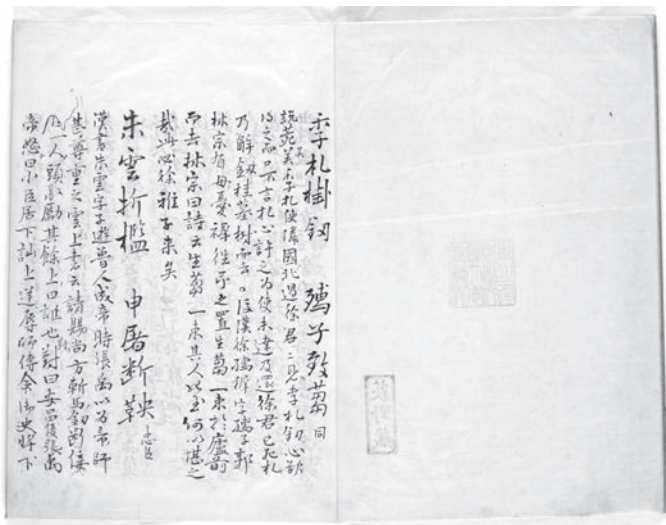 季札掛釼　孺子致蒭　同
説苑吴季札使隣國北過徐君〻見季札釼心欲
得之而口不言札心許之為使未達及還徐君已死札
乃解釼挂墓樹而去〇後漢徐穉字孺子郭
林宗有母憂穉徃弔之置生蒭一束於廬前
而去林宗曰詩云生蒭一束其人如玉何以堪之
此必徐穉子来矣
朱雲折檻　申屠断鞅　忠臣
漢書朱雲字子遊魯人成帝時張禹以為帝師
甚尊重之雲上書云請賜尚方斬馬釼断佞
臣一人頭以勵其餘上曰誰也對曰安昌侯張禹
帝怒曰小臣居下訕上廷辱師傅令御史将下